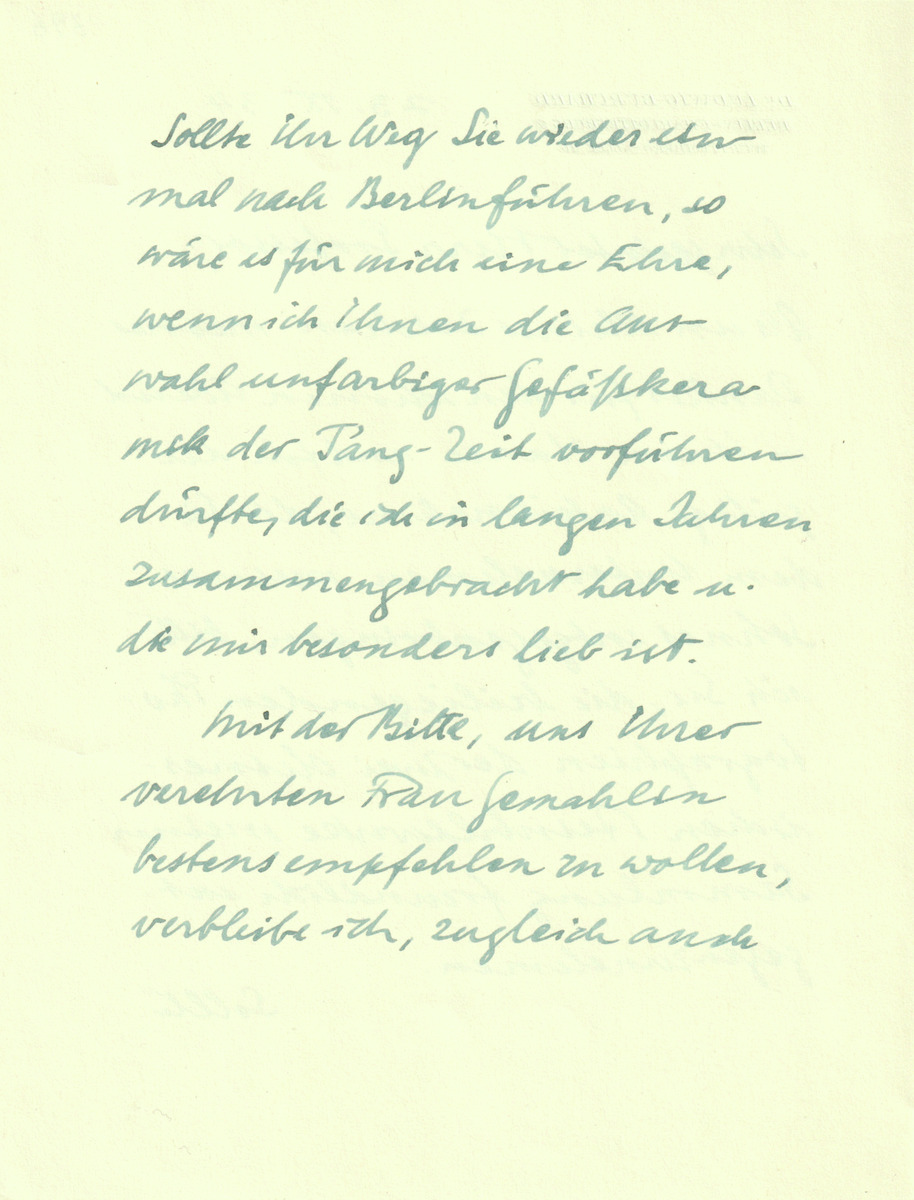 Sollte Ihr Weg Sie wieder ein
mal nach Berlin führen, so
wäre es für mich eine Ehre,
wenn ich Ihnen die Aus
wahl unfarbiger Gefäßkera
mik der T'ang-Zeit vorführen
dürfte, die ich in langen Jahren
zusammengebracht habe u.
die mir besonders lieb ist.
Mit der Bitte, uns Ihrer
verehrten Frau Gemahlin
bestens empfehlen zu wollen,
verbleibe ich, zugleich auch